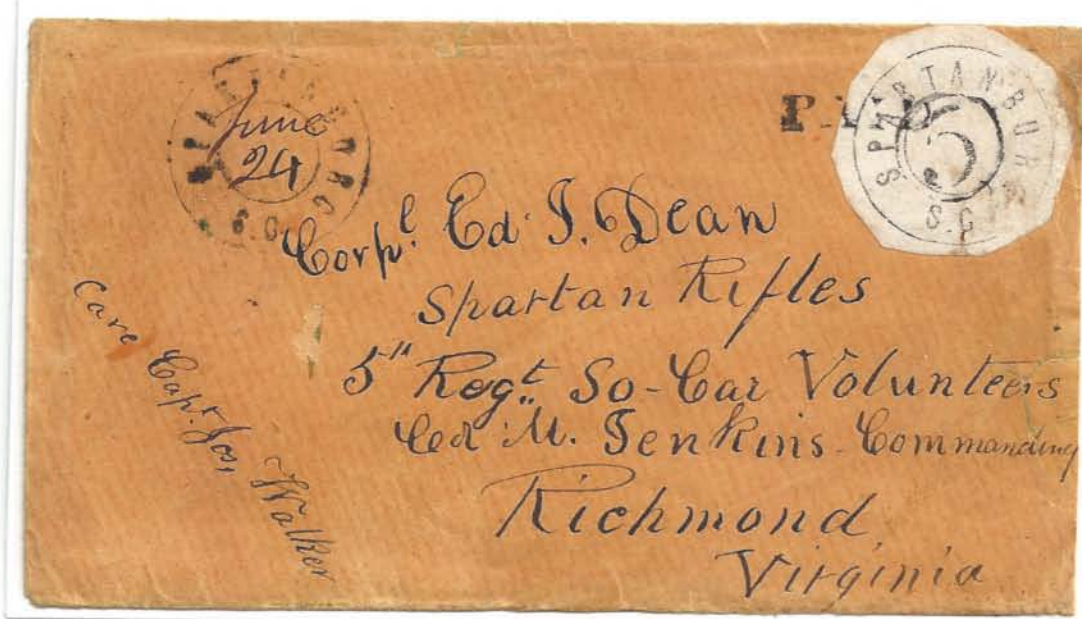 SPARTANBURG
S.C.
June
24
PAID
SPARTANBURG
5
S.C.
Corpl. Ed. J. Dean
Spartan Rifles
5" Regt. So-Car Volunteers
Col M. Jenkins Commanding
Richmond
Virginia
Care Capt. Jos, Walker